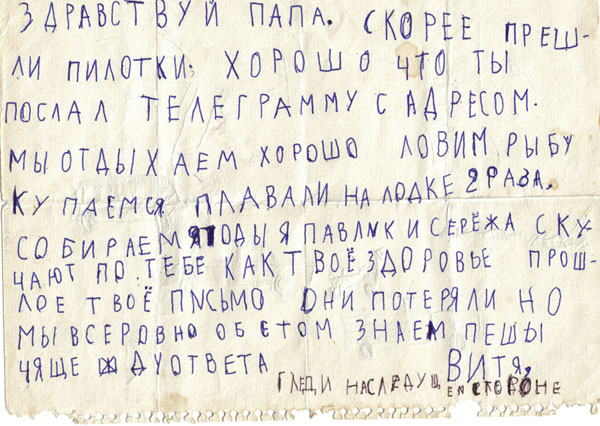 ЗДРАВСТВУЙ ПАПА. СКОРЕЕ ПРЕШ-
ЛИ ПИЛОТКИ; ХОРОШО ЧТО ТЫ
ПОСЛАЛ ТЕЛЕГРАММУ С АДРЕСОМ.
МЫ ОТДЫХАЕМ ХОРОШО ЛОВИМ РЫБУ
КУПАЕМСЯ ПЛАВАЛИ НА ЛОДКЕ 2 РАЗА.
СОБИРАЕМ ЯГОДЫ Я ПАВЛИК И СЕРЁЖА СКУ-
ЧАЮТ ПО ТЕБЕ КАК ТВОЁ ЗДОРОВЬЕ ПРОШ-
ЛОЕ ТВОЁ ПИСЬМО ОНИ ПОТЕРЯЛИ НО
МЫ ВСЕРОВНО ОБ ЕТОМ ЗНАЕМ ПЕШЫ
ЧЯЩЕ ЖДУ ОТВЕТА ВИТЯ,
ГЛЕДИ НА СЛЕДУЩЕЙ СТОРОНЕ